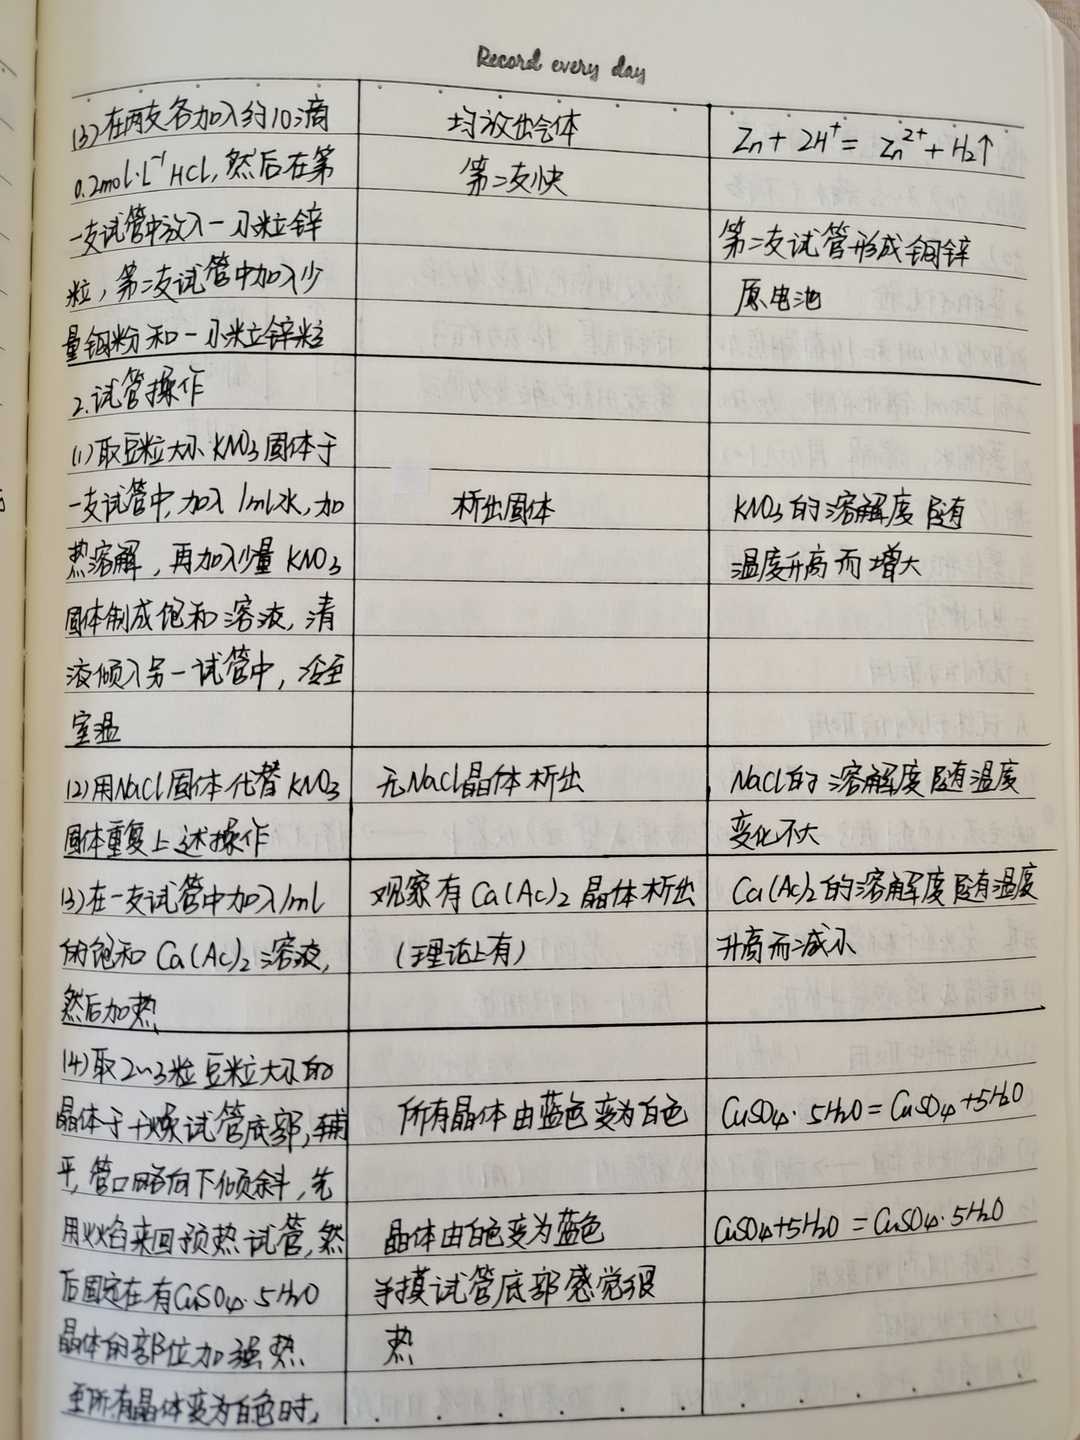 Record every day
(3)在两支各加入约10滴
0.2mol·L⁻¹ HCl,然后在第
一支试管中放入一小粒锌
粒,第二支试管中加入少
量铜粉和一小粒锌粒
均放出气体
第二支快
Zn + 2H⁺ = Zn²⁺ + H₂↑
第二支试管形成铜锌
原电池
2.试管操作
(1)取豆粒大小KNO₃固体于
一支试管中,加入1mL水,加
热溶解,再加入少量KNO₃
固体制成饱和溶液,清
液倾入另一试管中,冷至
室温
析出固体
KNO₃的溶解度随着
温度升高而增大
(2)用NaCl固体代替KNO₃
固体重复上述操作
无NaCl晶体析出
NaCl的溶解度随温度
变化不大
(3)在一支试管中加入1mL
的饱和Ca(Ac)₂溶液,
然后加热
观察有Ca(Ac)₂晶体析出
(理论上有)
Ca(Ac)₂的溶解度随温度
升高而减小
(4)取2~3粒豆粒大小的
晶体于干燥试管底部,铺
平,管口略向下倾斜,先
用火焰来回预热试管,然
后固定在有CuSO₄·5H₂O
晶体的部位加强热
至所有晶体变为白色时,
所有晶体由蓝色变为白色
晶体由白色变为蓝色
手摸试管底部感觉很
热
CuSO₄·5H₂O = CuSO₄+5H₂O
CuSO₄+5H₂O = CuSO₄·5H₂O